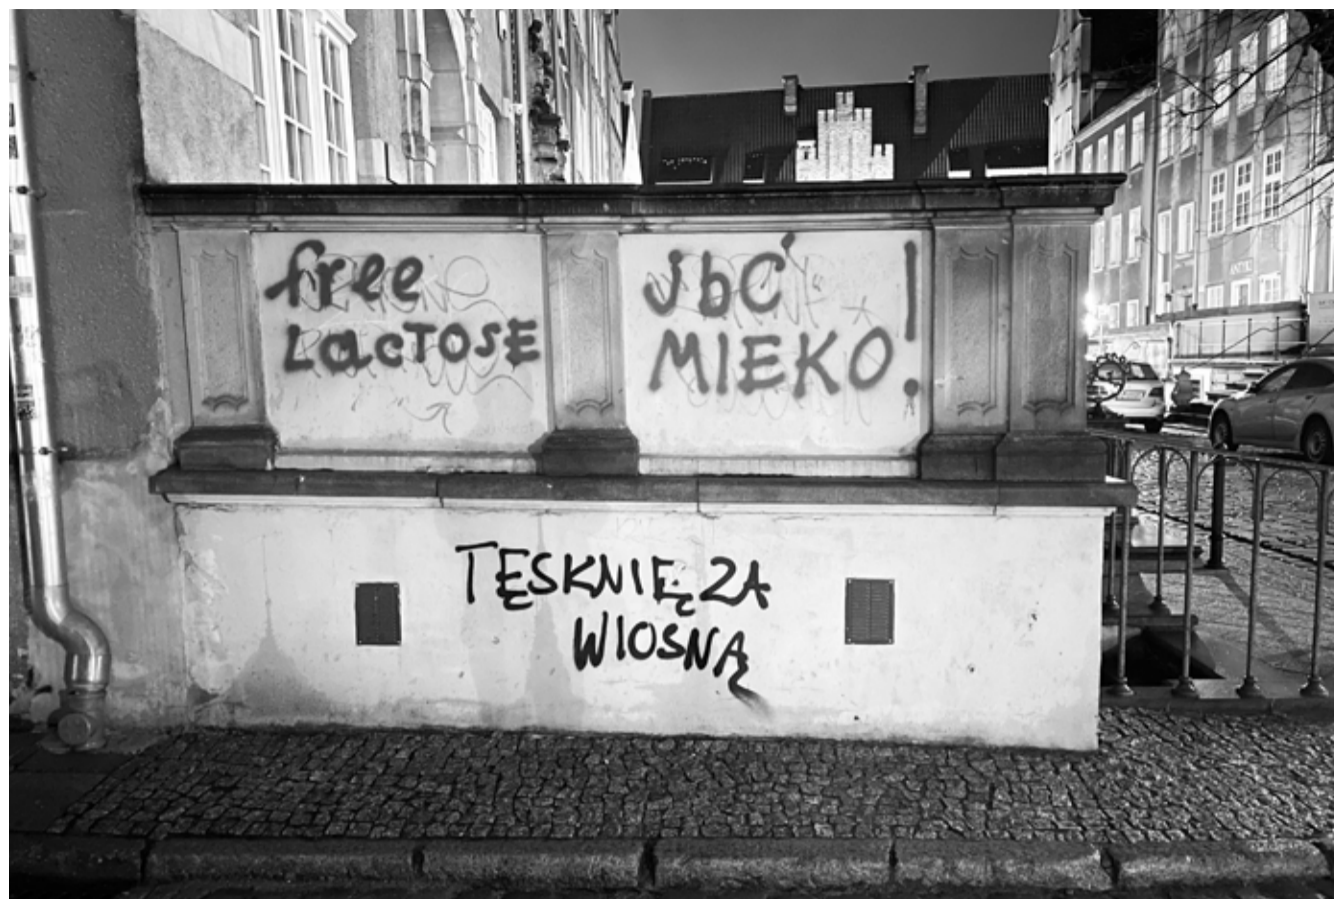 free
LacTOSE
JbĆ
MIEKO!
TĘSKNIĘ ZA
WIOSNĄ
ANTYKI